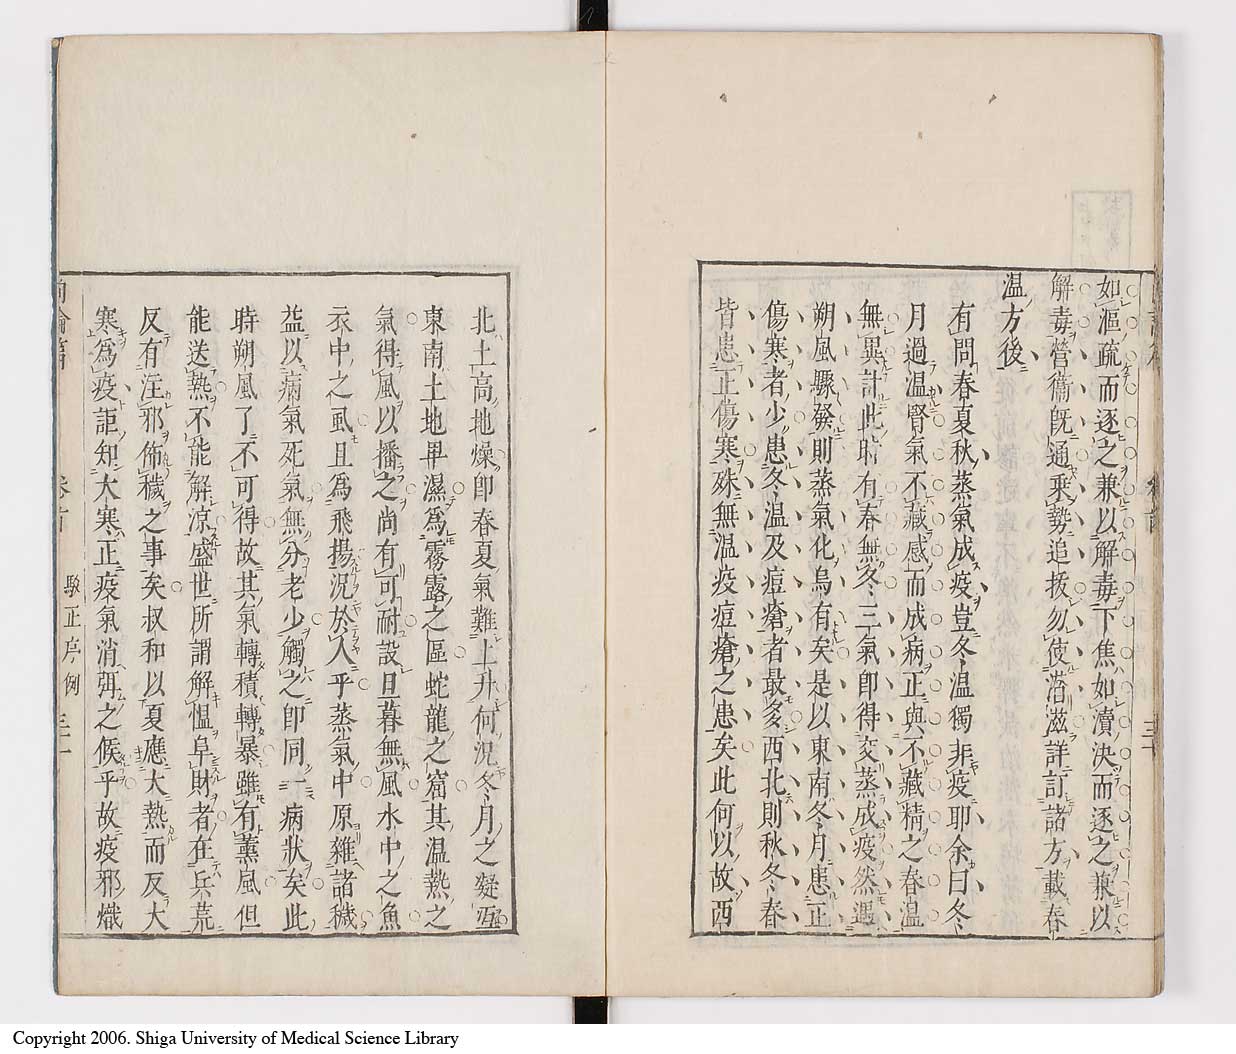 如漚疏而逐之兼以解毒下焦如瀆決而逐之兼以
解毒營衞既通乗勢追拔勿使滋詳訂諸方載春
温方後
有問春夏秋蒸氣成疫豈冬温獨非疫耶余曰冬
月過温腎氣不藏感而成病正與不藏精之春温
無異計此時有春無冬三氣即得交蒸成疫然遇
朔風驟發則蒸氣化烏有矣是以東南冬月患正
傷寒者少患冬温及痘瘡者最多西北則秋冬春
皆患正傷寒殊無温疫痘瘡之患矣此何以故西
北土高地燥即春夏氣難上升何況冬月之凝冱
東南土地卑濕為霧露之區蛇龍之窟其温熱之
氣得風以播之尚有可耐設旦暮無風水中之魚
衣中之虱且為飛揚況於人乎蒸氣中原雜諸穢
益以病氣死氣無分老少觸之即同一病狀矣此
時朔風了不可得故其氣轉積轉暴雖有薰風但
能送熱不能解凉盛世所謂解慍阜財者在兵荒
反有注邪佈穢之事矣叔和以夏應大熱而反大
寒為疫詎知大寒正疫氣消弭之候乎故疫邪熾
尚論篇
卷首
駁正序例
三一
Copyright 2006. Shiga University of Medical Science Library